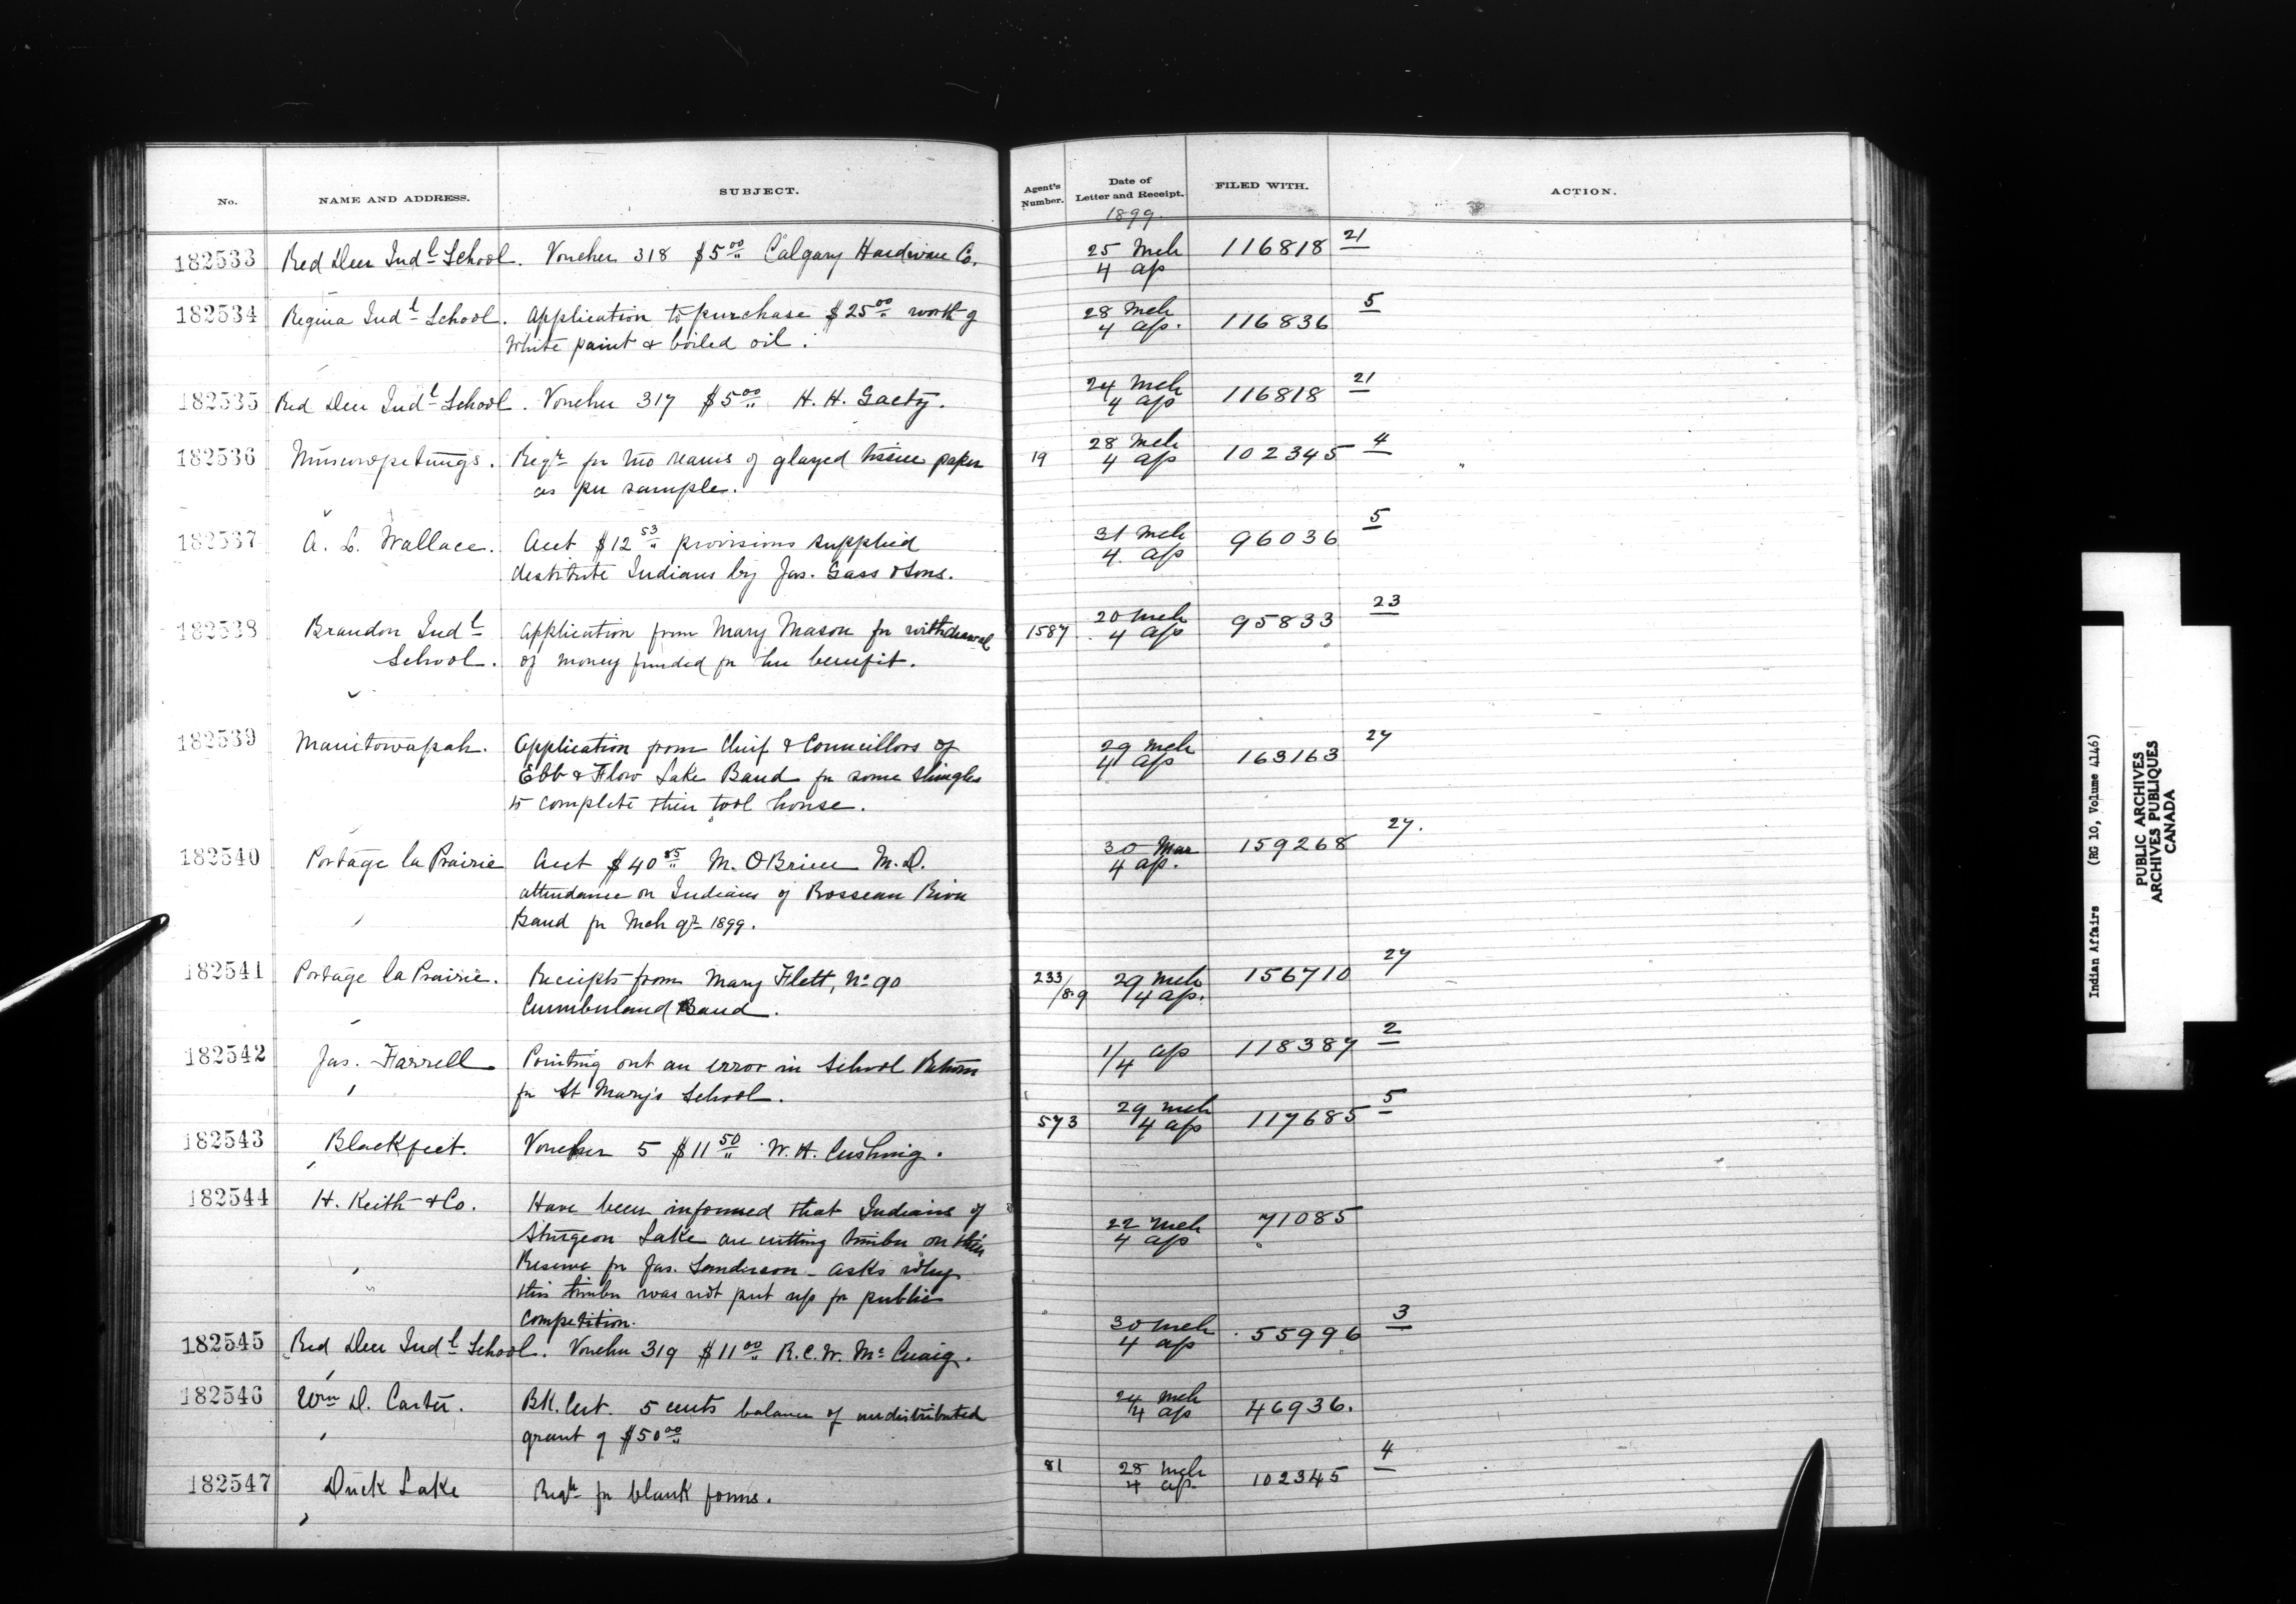 No. NAME AND ADDRESS. SUBJECT. Agent's Number. Date of Letter and Receipt. FILED WITH. ACTION.
1899.
182533 Red Deer Indl School. Voucher 318 $5.00 Calgary Hardware Co. 25 Mch 116818 21
4 ap
182534 Regina Indl School. Application to purchase $25.00 worth of 28 Mch 116836 5
White paint & boiled oil. 4 ap.
182535 Red Deer Indl School. Voucher 317 $5.00 H. H. Gaety. 24 Mch 116818 21
4 ap
182536 Muscowpetungs. Reqn for two reams of glazed tissue paper 19 28 Mch 102345 4
as per sample. 4 ap
182537 A. L. Wallace. Acct $12.53 provisions supplied 31 Mch 96036 5
destitute Indians by Jas. Gass & Sons. 4. ap
182538 Brandon Indl Application from Mary Mason for withdrawal 1587 20 Mch 95833 23
School. of money funded for her benefit. 4 ap
182539 Manitowapah. Application from Chief & Councillors of 29 Mch 163163 27
Ebb & Flow Lake Band for some shingles 4 ap
to complete their tool house.
182540 Portage la Prairie Acct $40.85 M. OBrien M.D. 30 Mar 159268 27.
attendance on Indians of Rosseau River 4 ap.
Band for Mch qr 1899.
182541 Portage la Prairie. Receipts from Mary Flett, No 90 233/8.9 29 Mch 156710 27
Cumberland Band. 4 ap.
182542 Jas. Farrell. Pointing out an error in School Return 1/4 ap 118387 2
for St Mary's School.
182543 Blackfeet. Voucher 5 $11.50 W. H. Cushing. 573 29 Mch 117685 5
4 ap
182544 H. Keith & Co. Have been informed that Indians of 22 Mch 71085
Sturgeon Lake are cutting timber on their 4 ap
Reserve for Jas. Sanderson - asks why
this timber was not put up for public
competition.
182545 Red Deer Indl School. Voucher 319 $11.00 R.C.W. Mc Cuaig. 30 Mch 55996 3
4 ap
182546 Wm D. Carter. Bk. Cert. 5 cents balance of undistributed 24 Mch 46936.
grant of $50.00 4 ap
182547 Duck Lake Reqn for blank forms. 81 28 Mch 102345 4
4 ap.
Indian Affairs (RG 10, Volume 4146)
PUBLIC ARCHIVES
ARCHIVES PUBLIQUES
CANADA